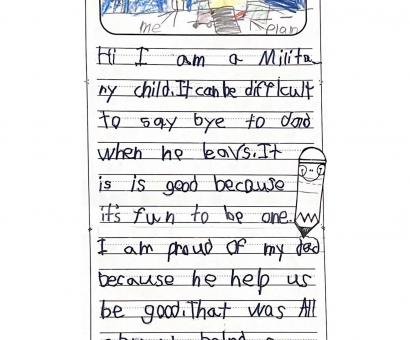 me plan
Hi I am a Milita
ry child.It can be difficult
to say bye to dad
when he leavs.It
is is good because
it's fun to be one.
I am proud of my dad
because he help us
be good.That was All